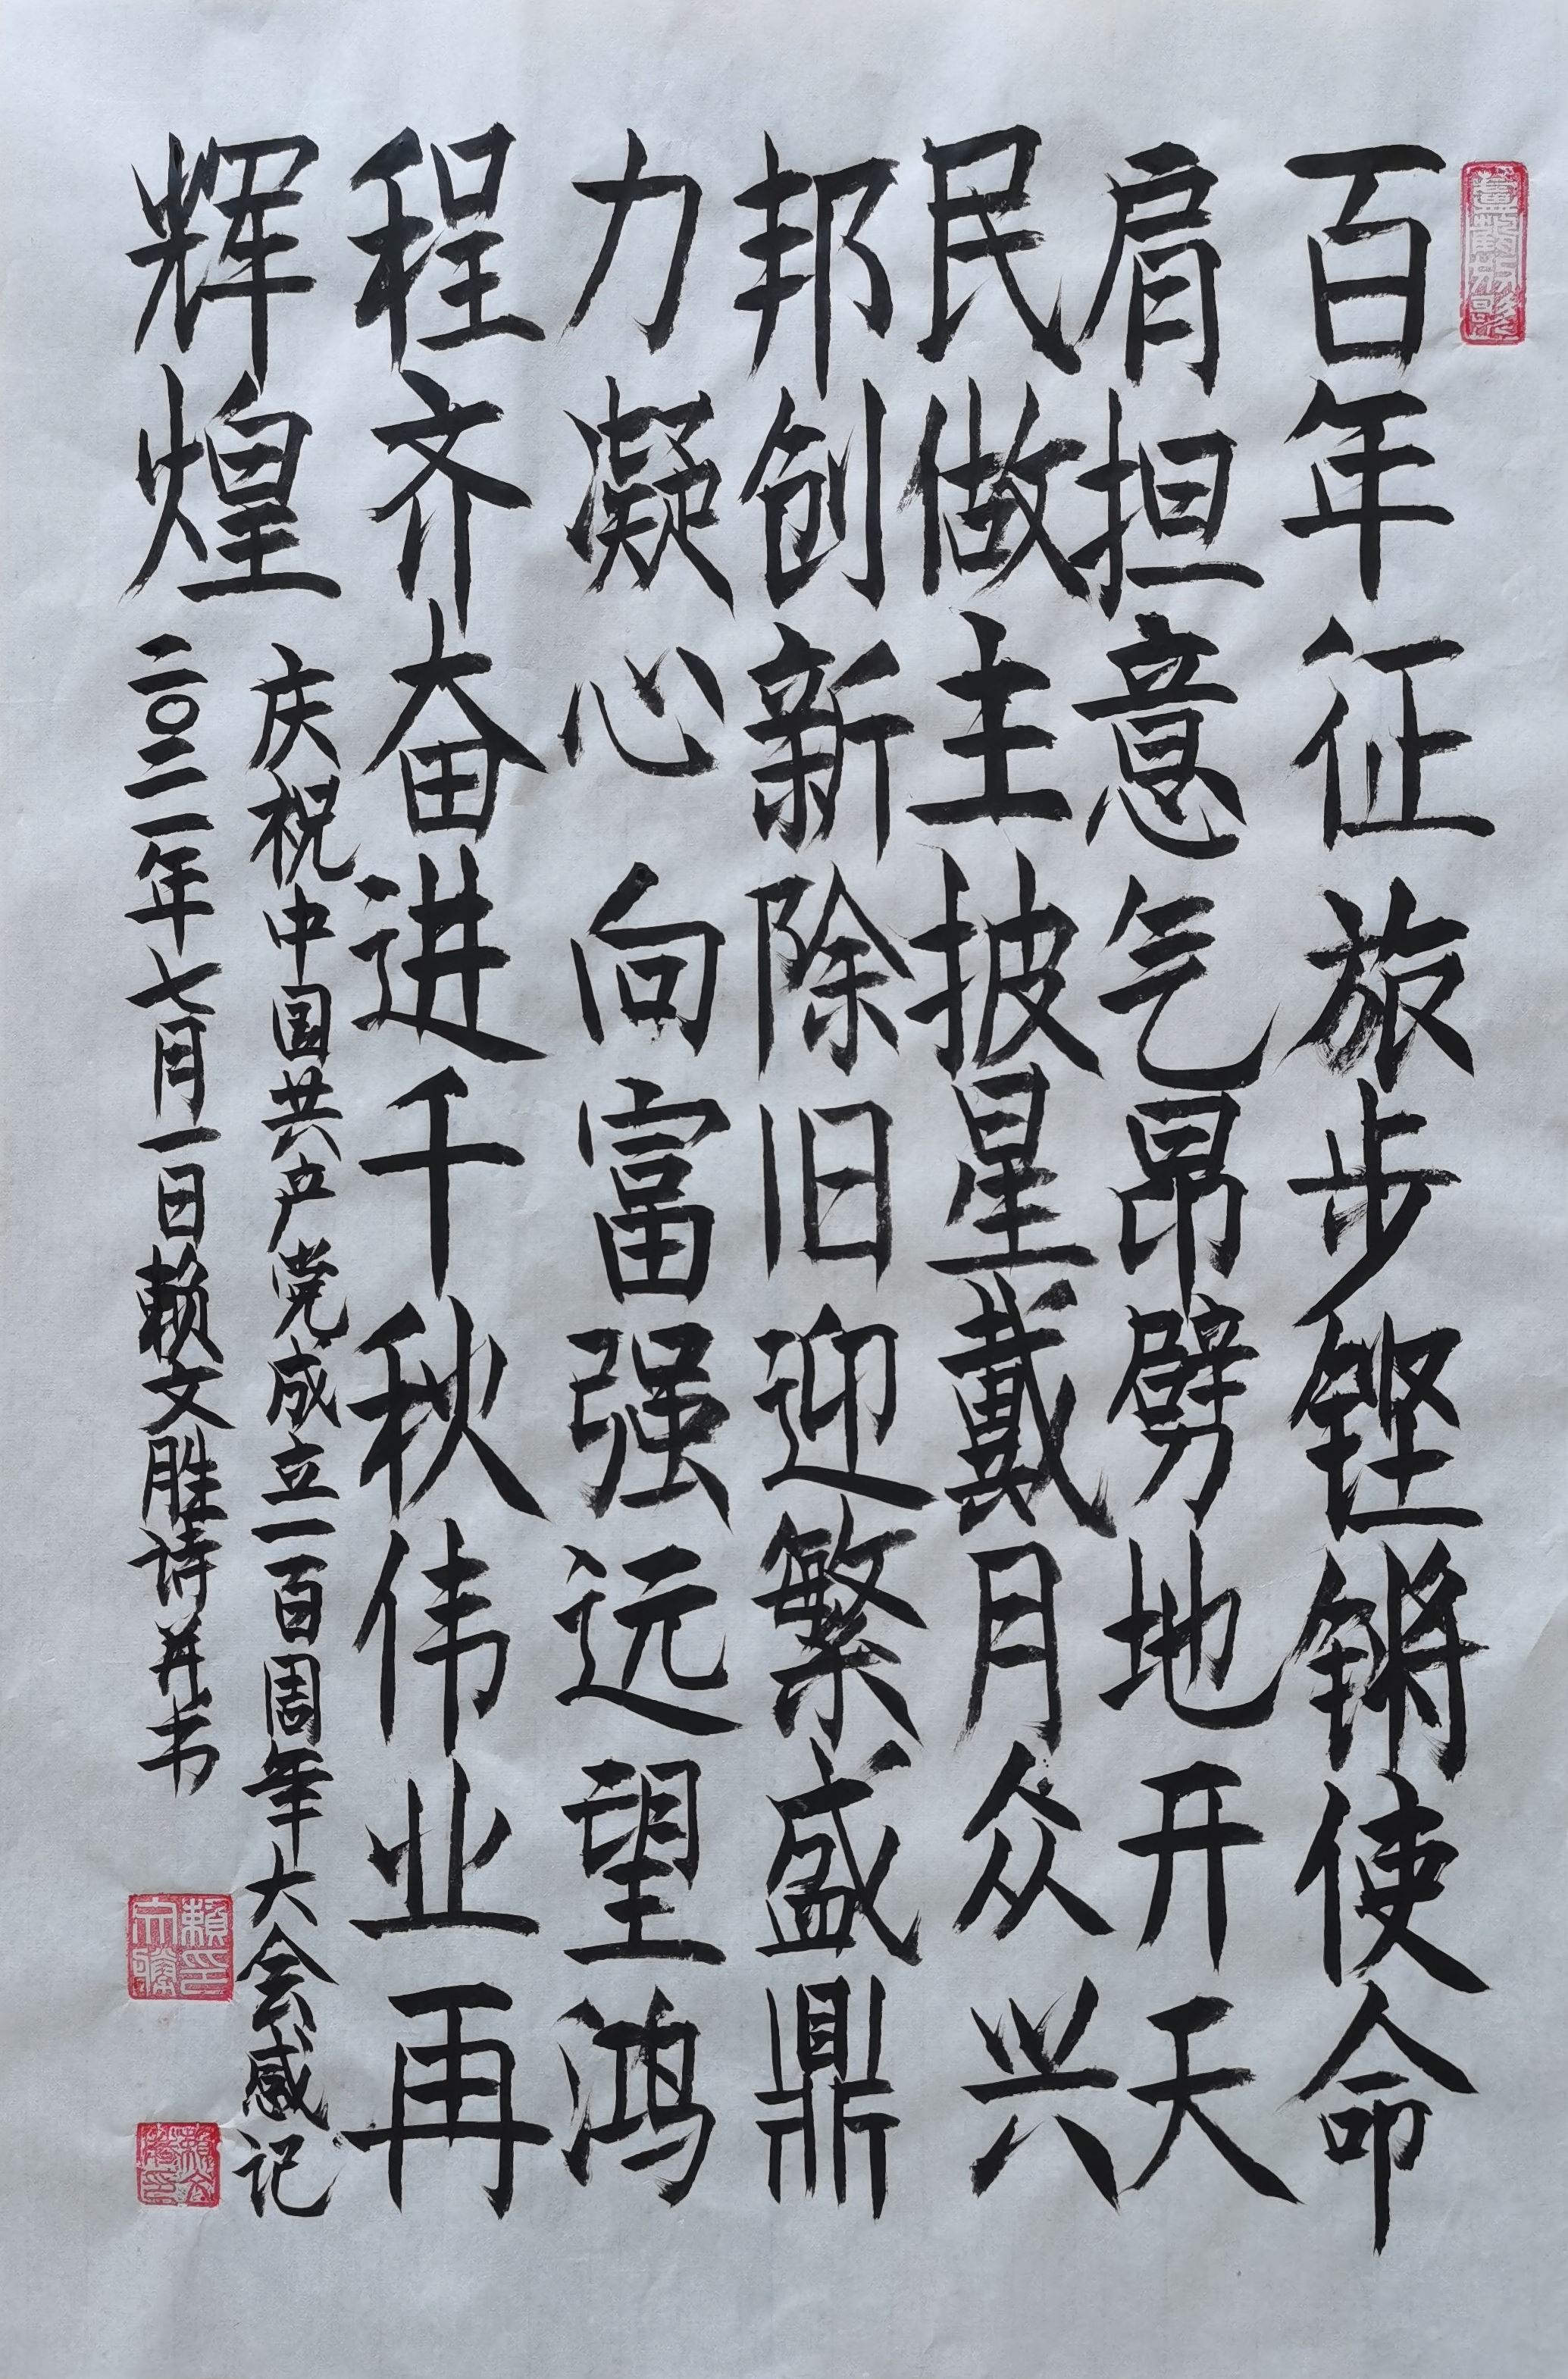 百年征旅步铿锵使命
肩担意气昂劈地开天
民做主披星戴月众兴
邦创新除旧迎繁盛鼎
力凝心向富强远望鸿
程齐奋进千秋伟业再
辉煌
庆祝中国共产党成立一百周年大会感记
二〇二一年七月一日赖文胜诗并书